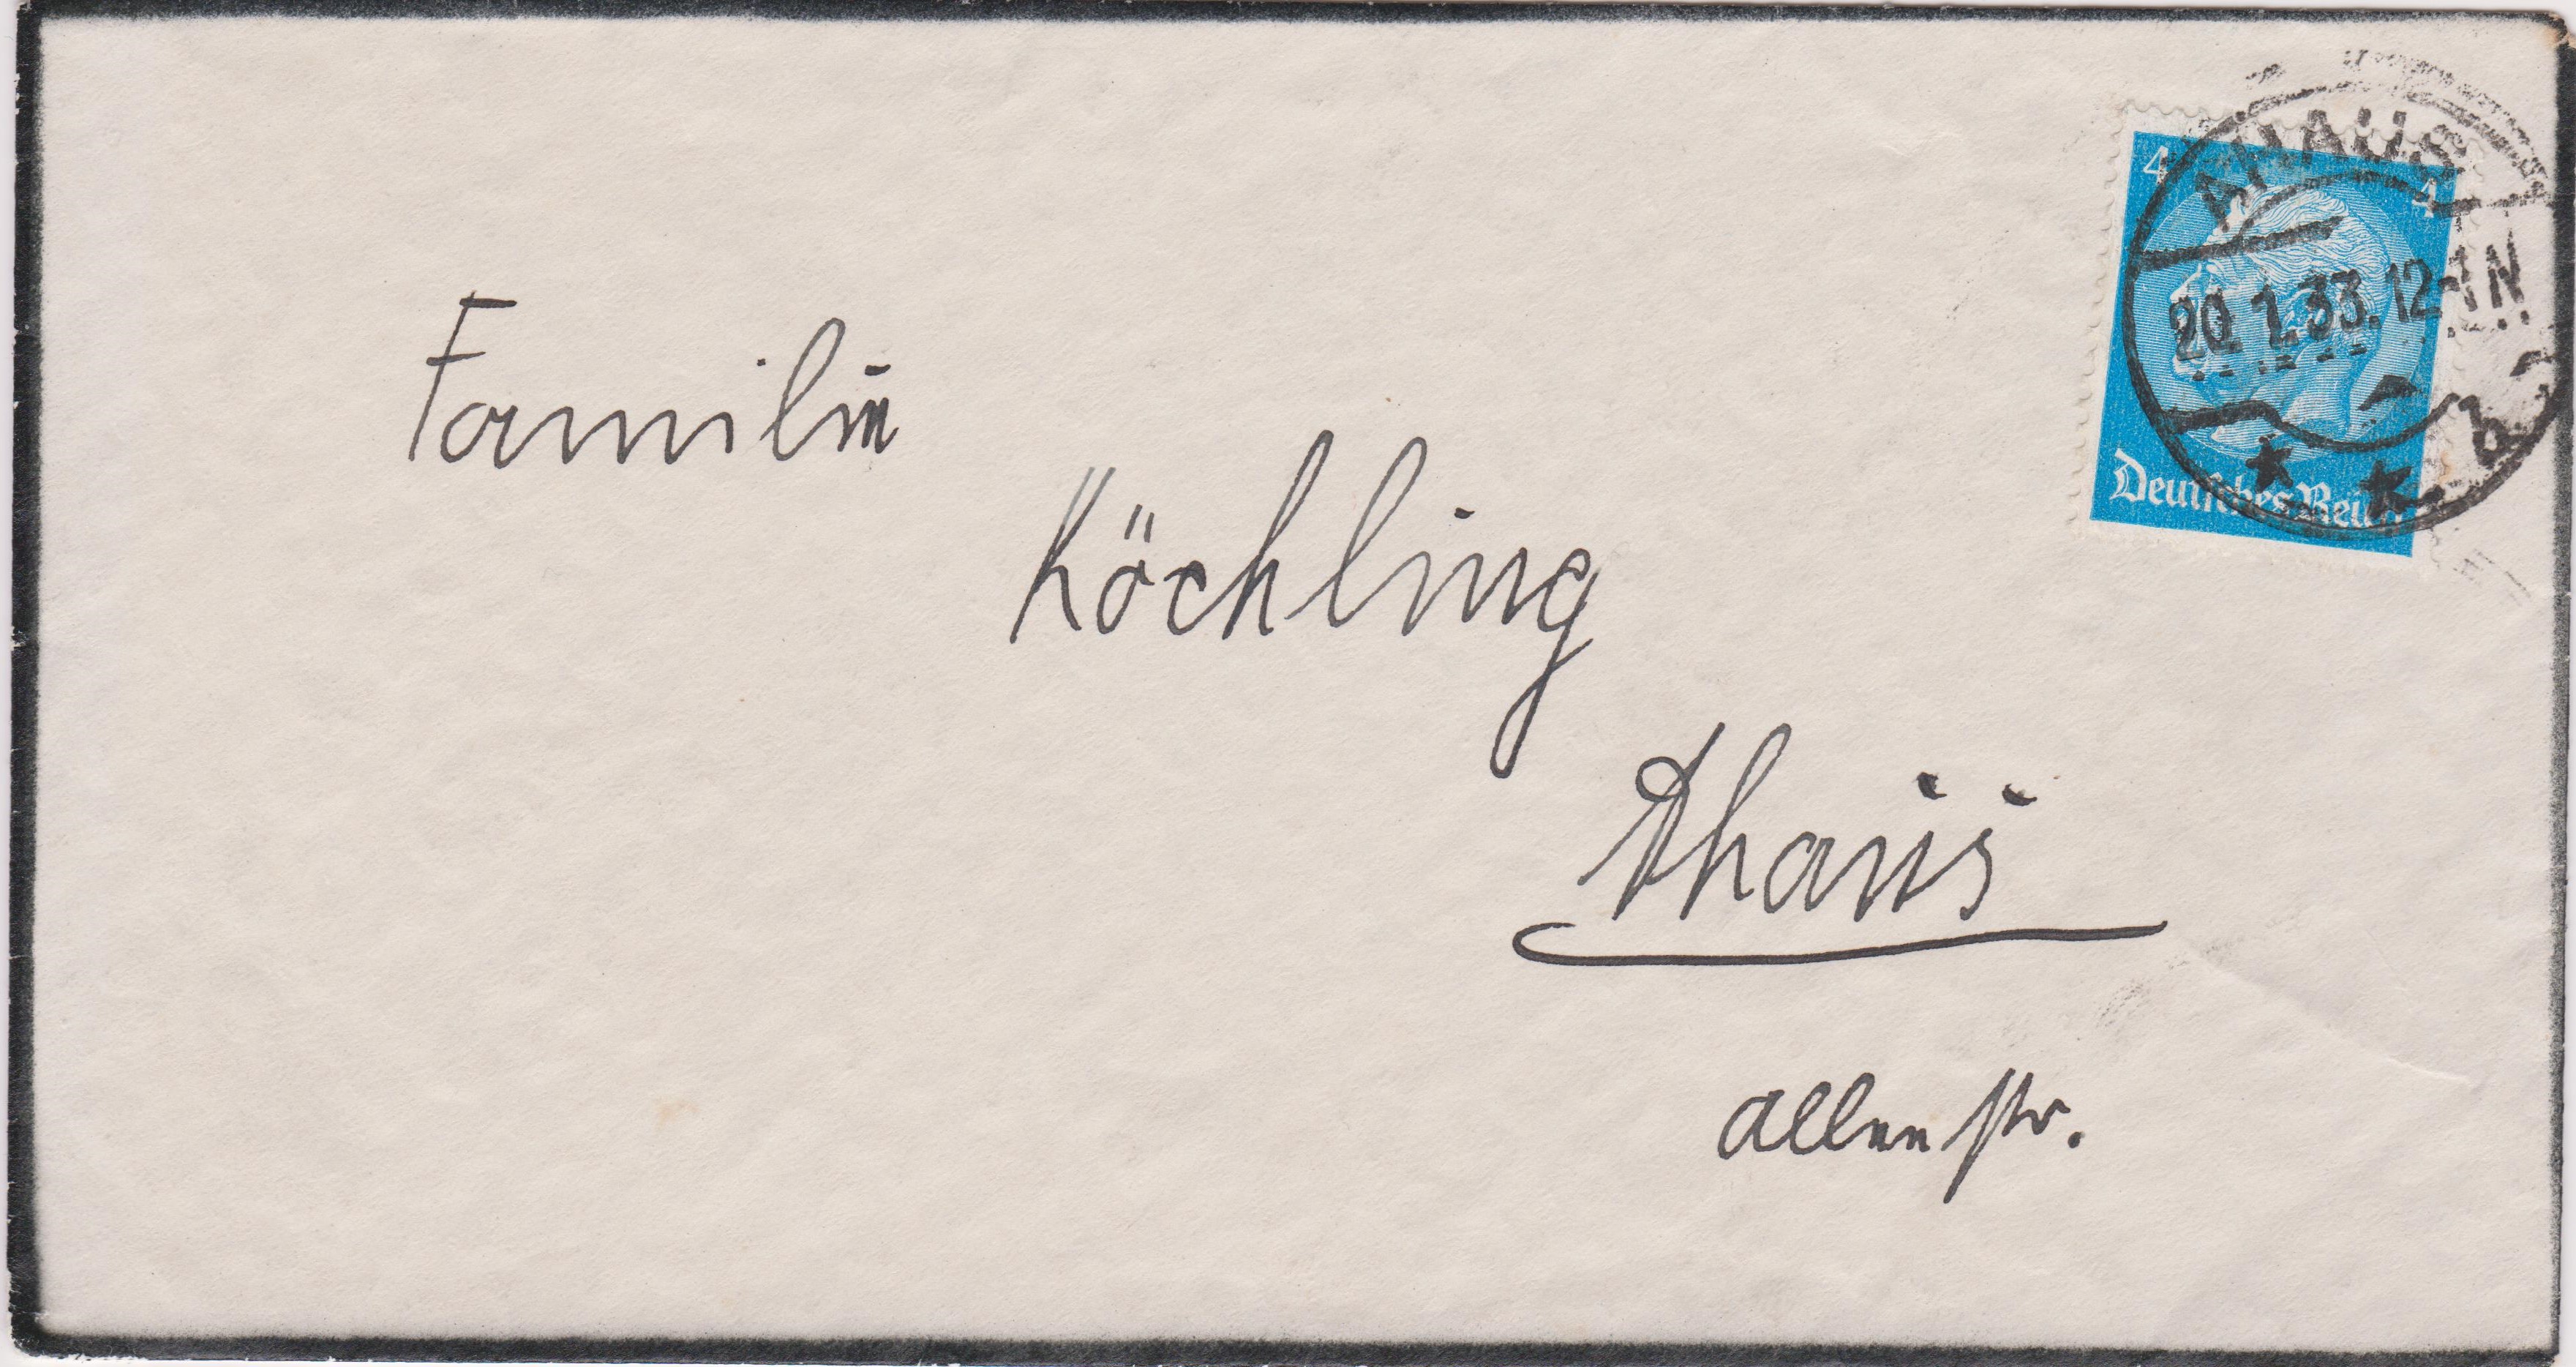 4 4
Deutsches Reich
AHAUS
20.1.33.12-1N
* * b
Familie
Köchling
Ahaus
Alleestr.